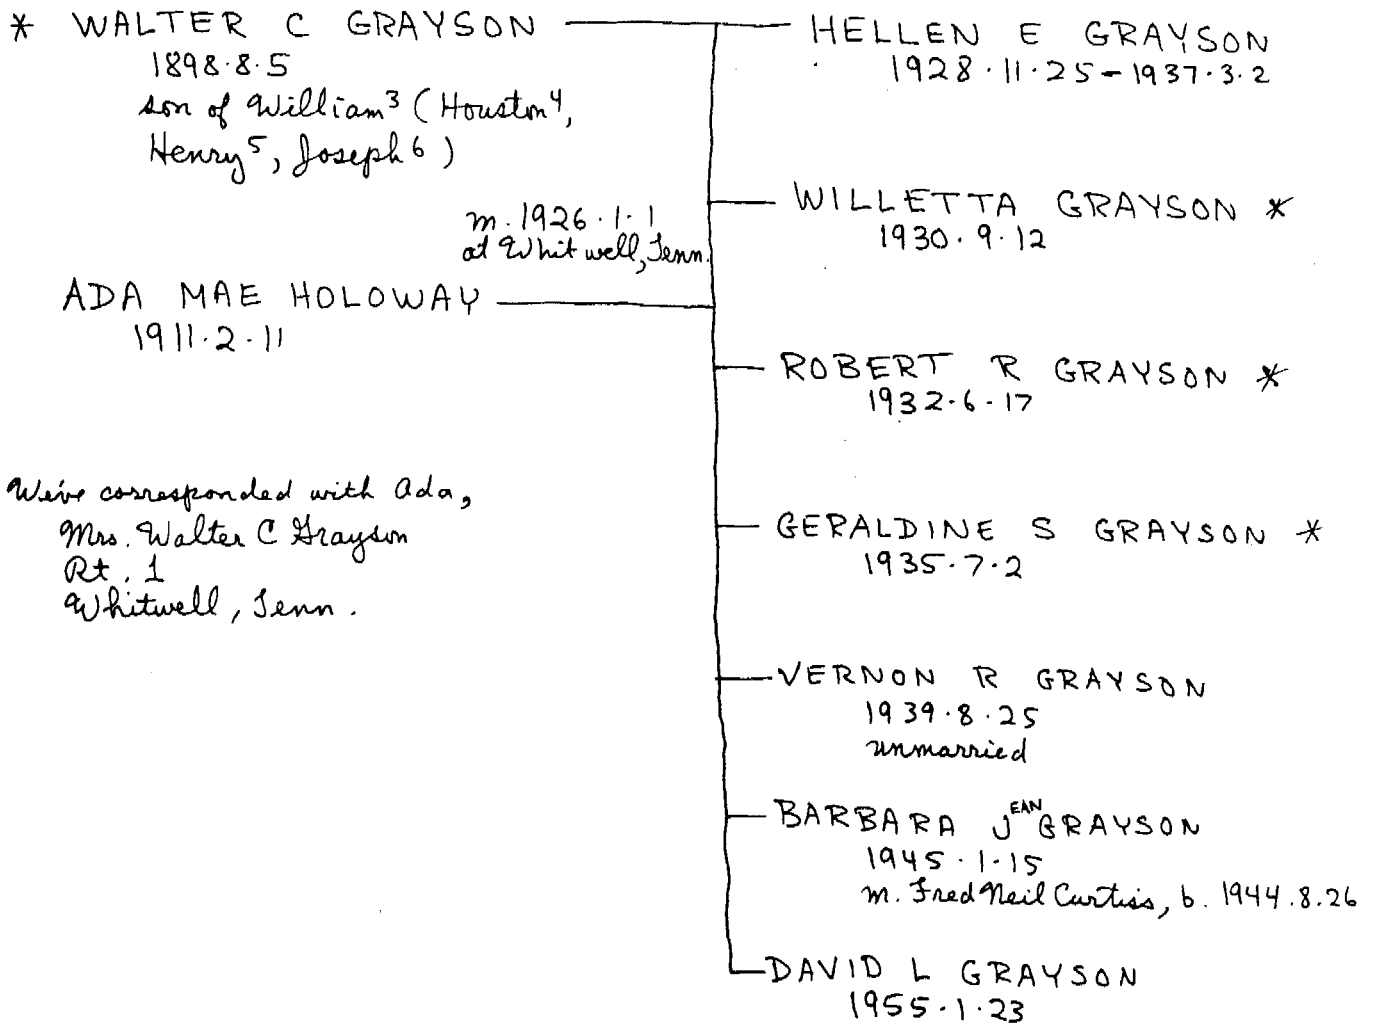 * WALTER C GRAYSON
1898·8·5
son of William³ (Houston⁴,
Henry⁵, Joseph⁶)
m. 1926·1·1
at Whitwell, Tenn.
ADA MAE HOLOWAY
1911·2·11
We've corresponded with Ada,
Mrs. Walter C Grayson
Rt. 1
Whitwell, Tenn.
HELLEN E GRAYSON
1928·11·25-1937·3·2
WILLETTA GRAYSON *
1930·9·12
ROBERT R GRAYSON *
1932·6·17
GERALDINE S GRAYSON *
1935·7·2
VERNON R GRAYSON
1939·8·25
unmarried
BARBARA JEAN GRAYSON
1945·1·15
m. Fred Neil Curtiss, b. 1944.8.26
DAVID L GRAYSON
1955·1·23